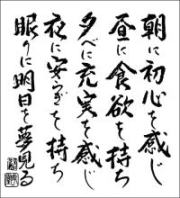 朝に初心を感じ
昼に食欲を持ち
夕べに充実を感じ
夜に安らぎを持ち
眠りに明日を夢見る